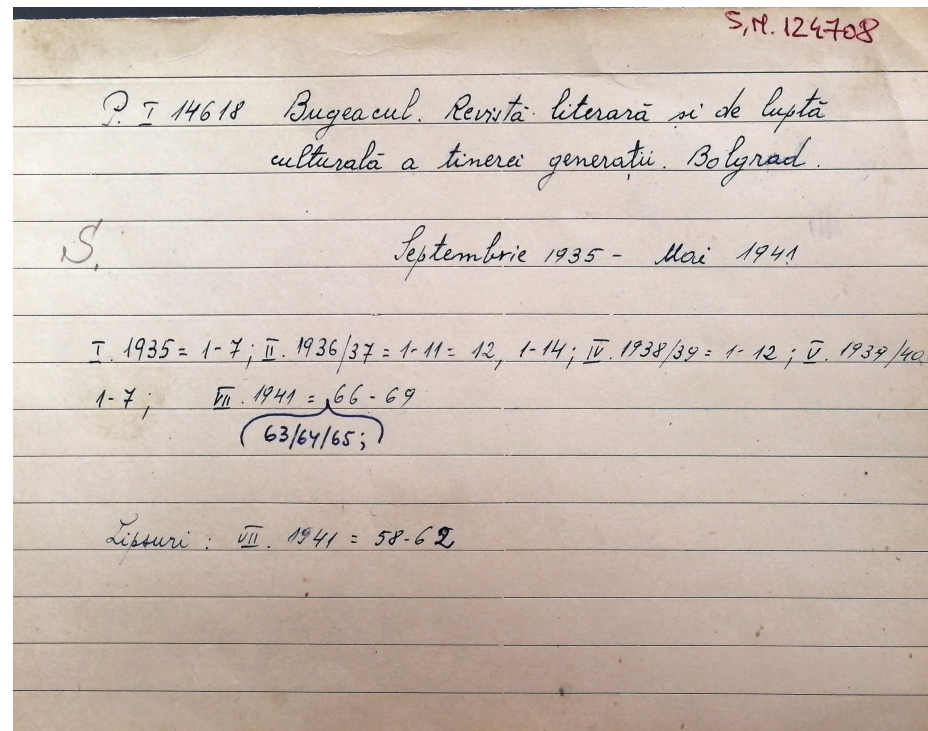 S,M. 124708
P. I 14618 Bugeacul. Revistă literară și de luptă
culturală a tinerei generații. Bolgrad.
S.
Septembrie 1935 - Mai 1941
I. 1935 = 1-7; II. 1936/37 = 1-11 = 12, 1-14; IV. 1938/39 = 1-12; V. 1939/40
1-7; VII. 1941 = 66-69
63/64/65;
Lipsuri: VII. 1941 = 58-62